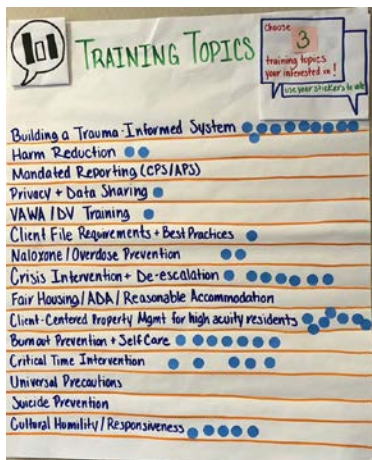 TRAINING TOPICS
Choose
3
training topics
your interested in!
use your stickers to vote
Building a Trauma-Informed System
Harm Reduction
Mandated Reporting (CPS/APS)
Privacy + Data Sharing
VAWA/DV Training
Client File Requirements + Best Practices
Naloxone/Overdose Prevention
Crisis Intervention + De-escalation
Fair Housing/ADA/Reasonable Accommodation
Client-Centered Property Mgmt for high acuity residents
Burnout Prevention + Self Care
Critical Time Intervention
Universal Precautions
Suicide Prevention
Cultural Humility/Responsiveness